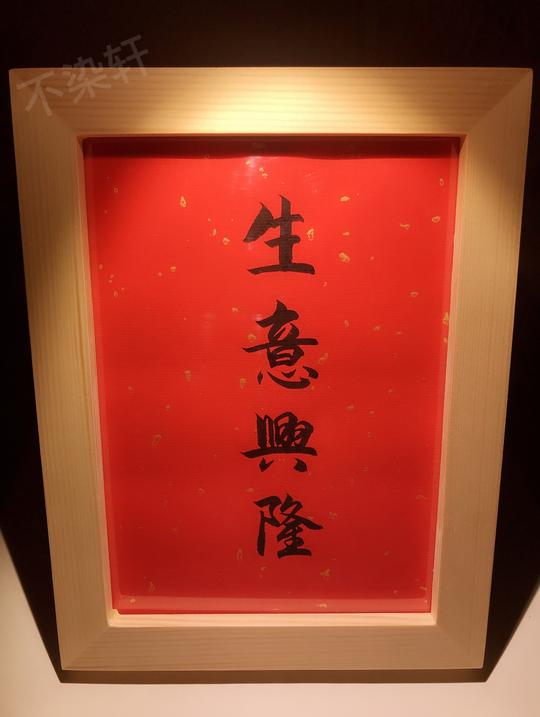 不染轩
生意興隆